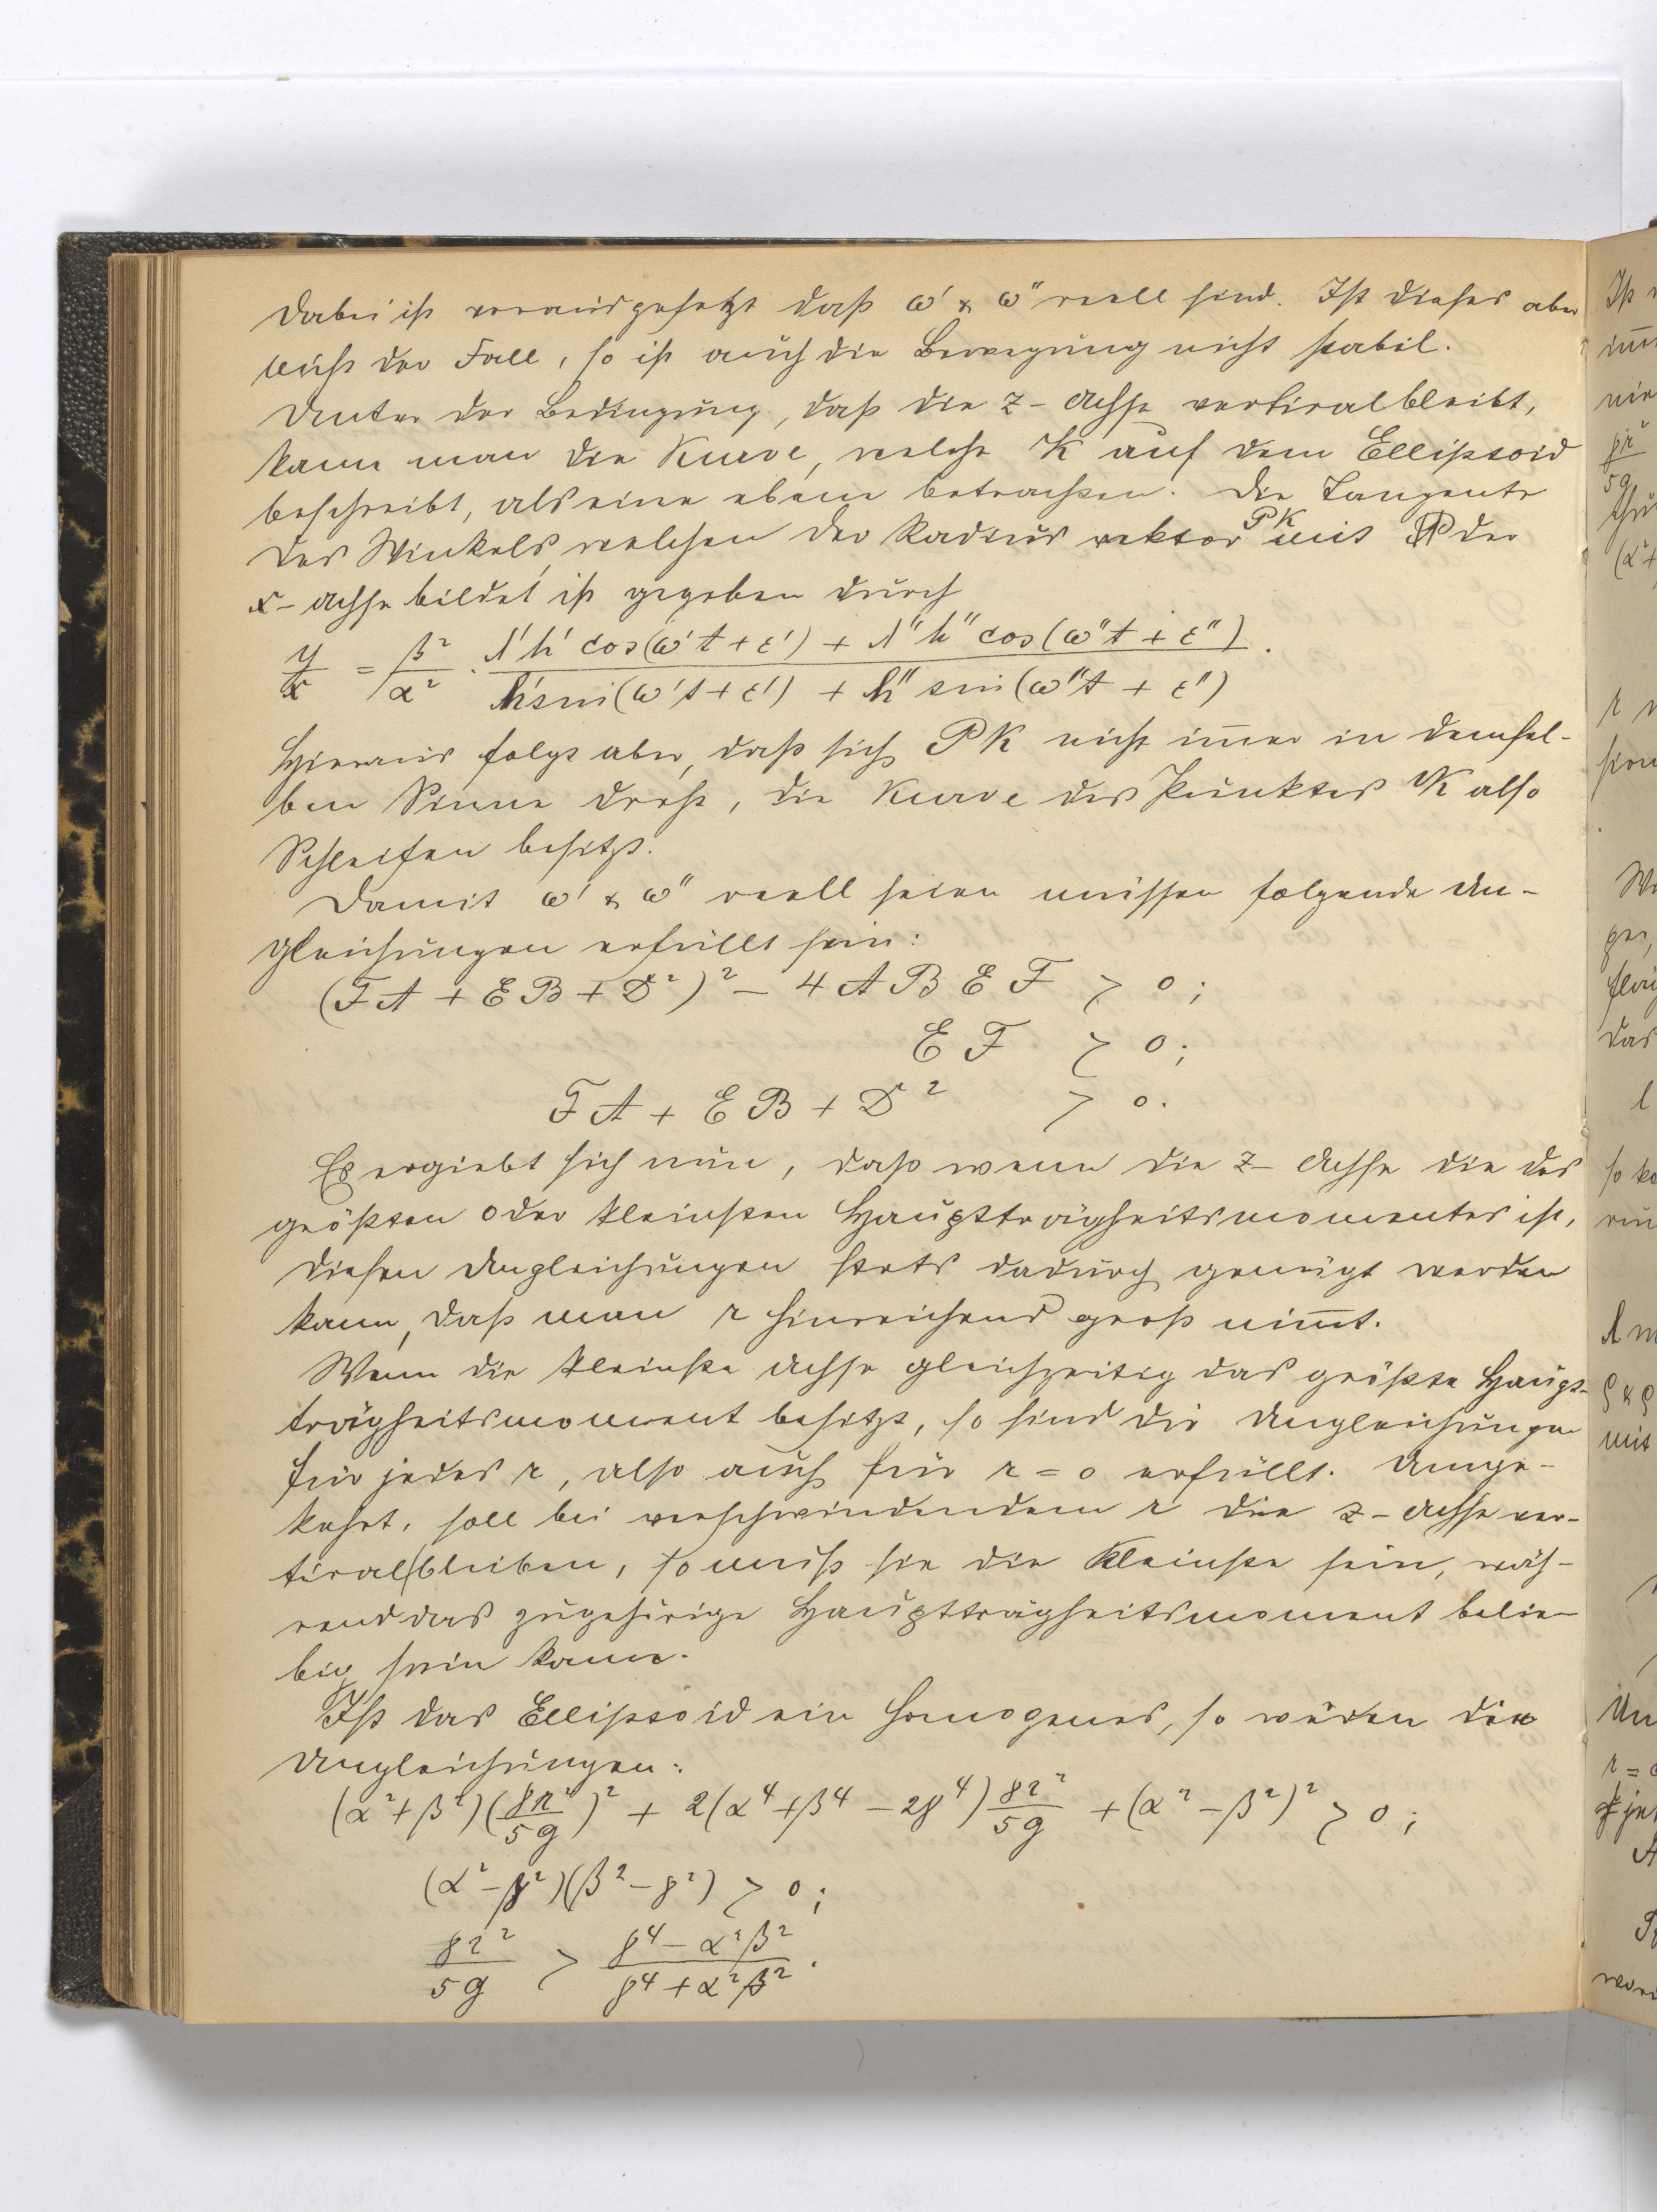 Dabei ist vorausgesetzt daß ω' & ω'' reell sind. Ist dieses aber
nicht der Fall, so ist auch die Bewegung nicht stabil.
Unter der Bedingung, daß die z-Achse vertical bleibt,
kann man die Kurve, welche K auf dem Ellipsoid
beschreibt, als eine ebene betrachten. Die Tangente
des Winkels, welchen der Radius vektor PK mit der
x-Achse bildet ist gegeben durch
y/x = β²/α² · (λ'h' cos(ω't + ε') + λ''h'' cos(ω''t + ε''))/(h' sin(ω't + ε') + h'' sin(ω''t + ε'')).
Hieraus folgt aber, daß sich PK nicht im̅er in demsel-
ben Sinne dreht, die Kurve des Punktes K also
Schleifen besitzt.
Damit ω' & ω'' reell seien müssen folgende Un-
gleichungen erfüllt sein:
(FA + EB + D²)² – 4ABEF > 0;
EF > 0;
FA + EB + D² > 0.
Es ergiebt sich nun, daß wenn die z-Achse die des
größten oder kleinsten Hauptträgheitsmomentes ist,
diesen Ungleichungen stets dadurch genügt werden
kann, daß man r hinreichend groß nim̅t.
Wenn die kleinste Achse gleichzeitig das größte Haupt-
trägheitsmoment besitzt, so sind die Ungleichungen
für jedes r, also auch für r = 0 erfüllt. Umge-
kehrt, soll bei verschwindendem r die z-Achse ver-
tical bleiben, so muß sie die Kleinste sein, wäh-
rend das zugehörige Hauptträgheitsmoment belie-
big sein kann.
Ist das Ellipsoid ein homogenes, so werden die
Ungleichungen:
(α² + β²)(γr²/5g)² + 2(α⁴ + β⁴ – 2γ⁴) γr²/5g + (α² – β²)² > 0;
(α² – γ²)(β² – γ²) > 0;
γr²/5g > (γ⁴ – α²β²)/(γ⁴ + α²β²).